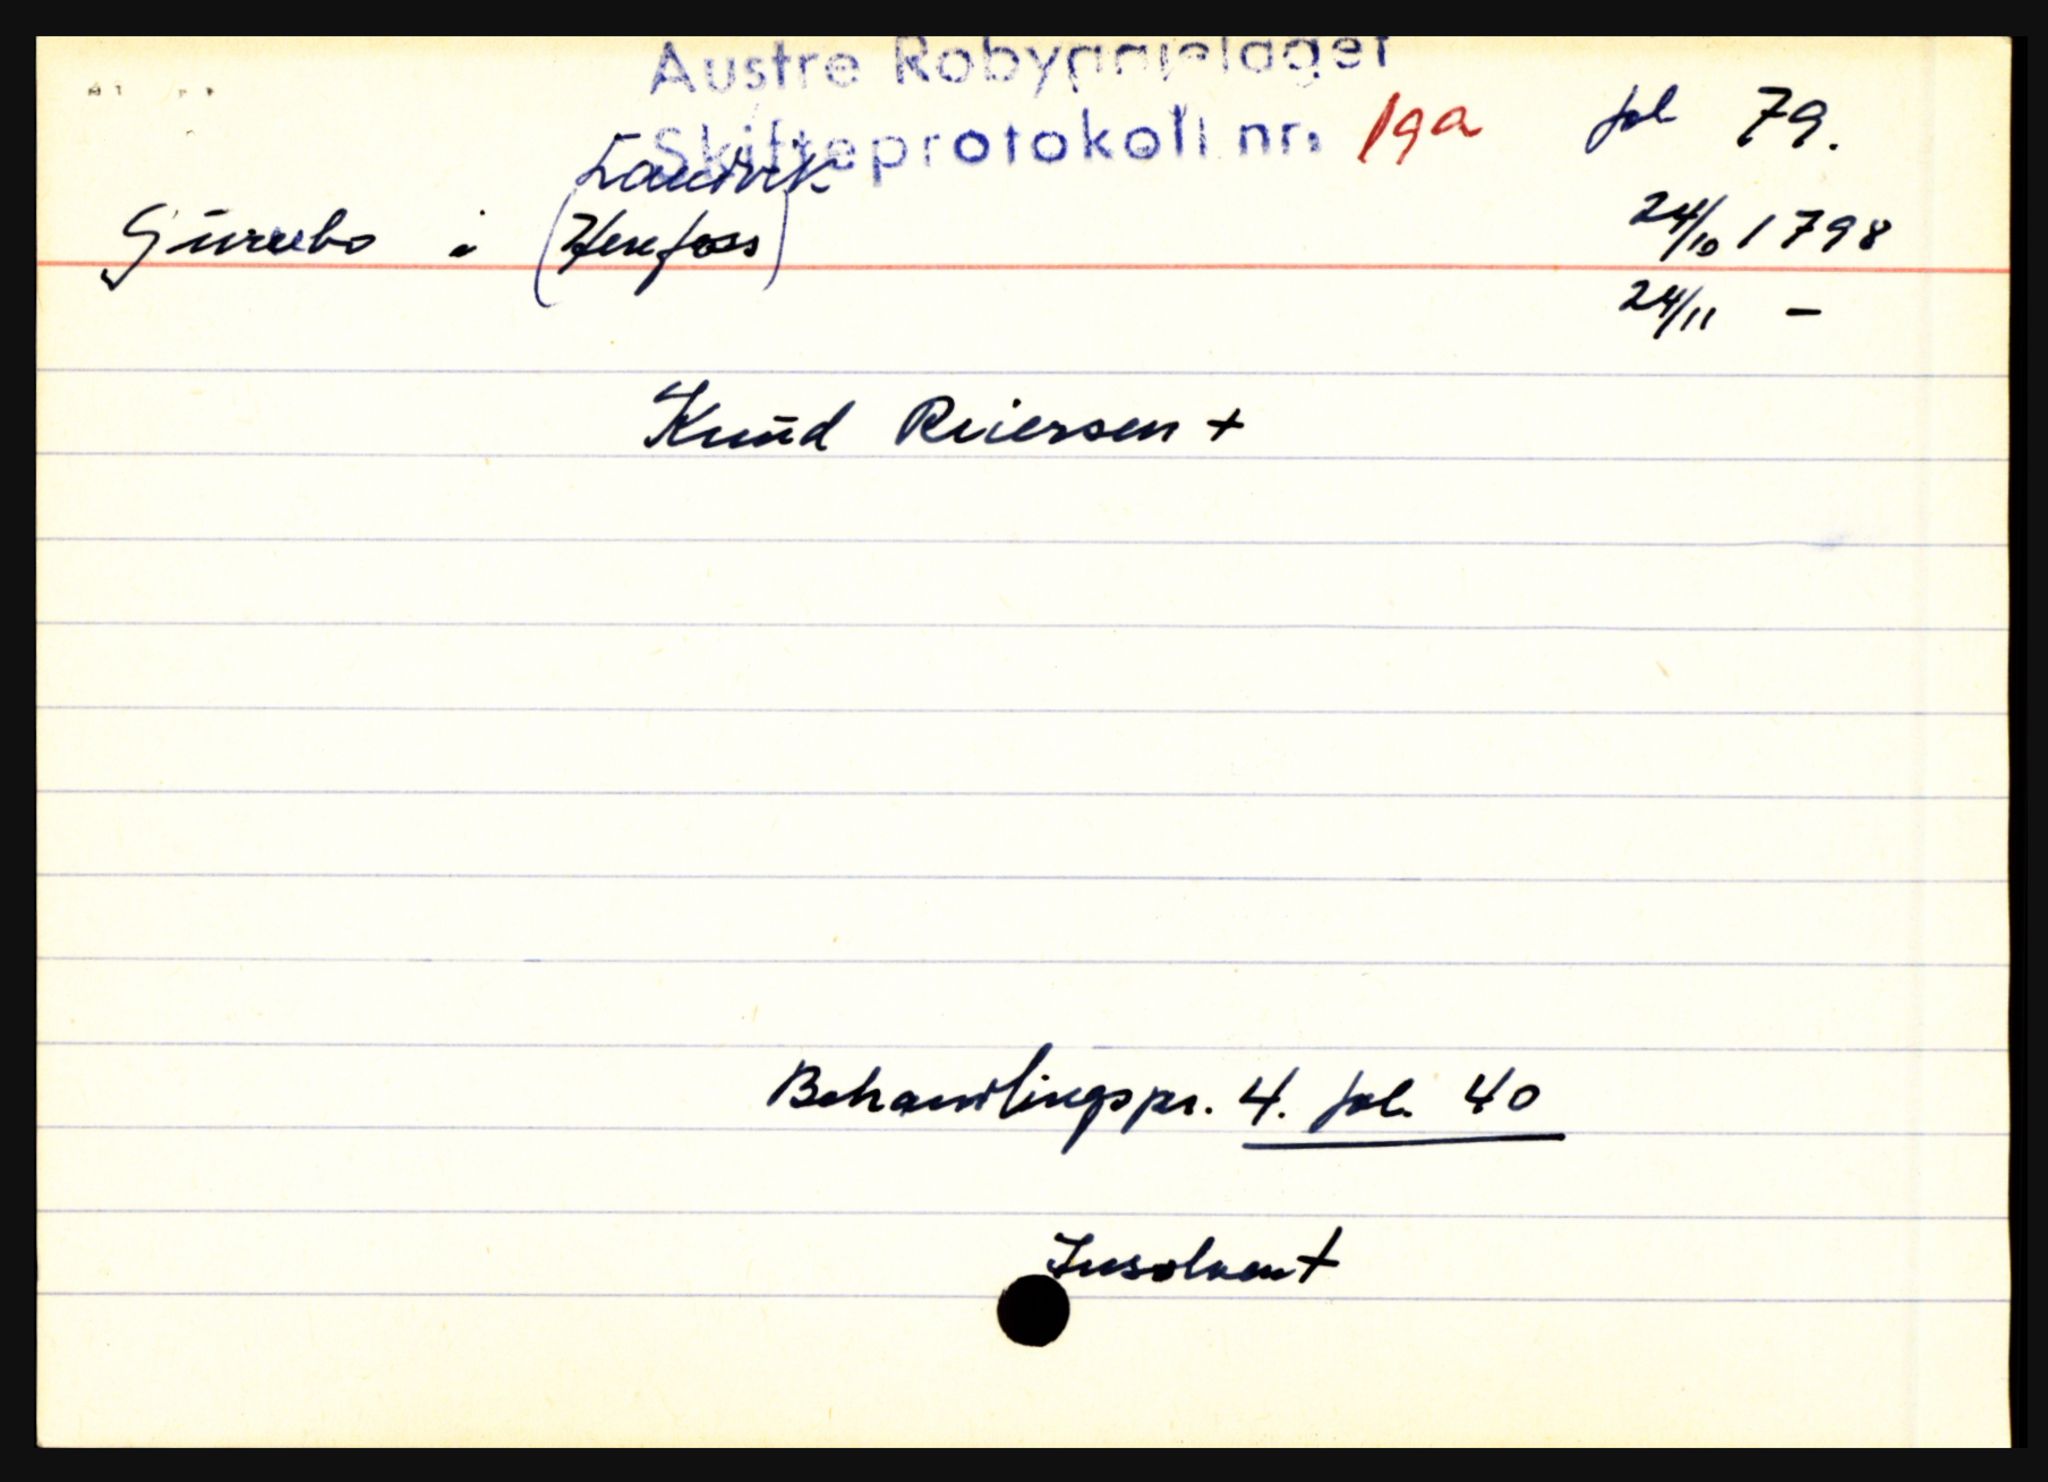 Austre Robyggjelaget
Skifteprotokoll nr. 19a fol 79.
Landvik
i (Herefoss) 24/10 1798
24/11 -
Knud Reiersen +
Behandlingspr. 4. fol. 40
Insolvent